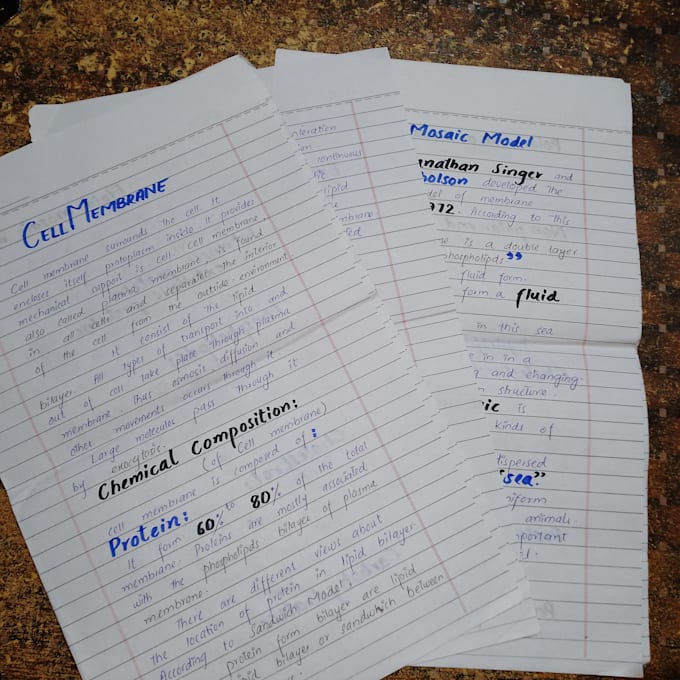 CELL MEMBRANE
Cell membrane surrounds the cell. It
encloses itself protoplasm inside. It provides
mechanical support is cell. Cell membrane,
also called plasma membrane, is found
in all cells and separates the interior
of the cell from the outside-environment
It consist of the lipid
bilayer. All types of transport into and
out of cell take place through plasma
membrane. Thus osmosis, diffusion and
other movements occurs through it
Large molecules pass through it
by exocytosis.
Chemical Composition:
(of Cell membrane)
Cell membrane is composed of:
Protein:
It form 60% to 80% of the total
membrane. Proteins are mostly associated
with the phospholipids bilayer of plasma
membrane.
There are different views about
the location of protein in lipid bilayer.
According to Sandwich Model,
protein form bilayer are lipid
bilayer or sandwhich between
continuous
lipid
Mosaic Model
nathan Singer and
olson developed the
del of membrane
972. According to this
is a double layer
hospholipids"
fluid form.
form a fluid
in this sea
in in a
and changing.
structure.
ic is
kinds of
ispersed
"sea."
niform
animals.
portant